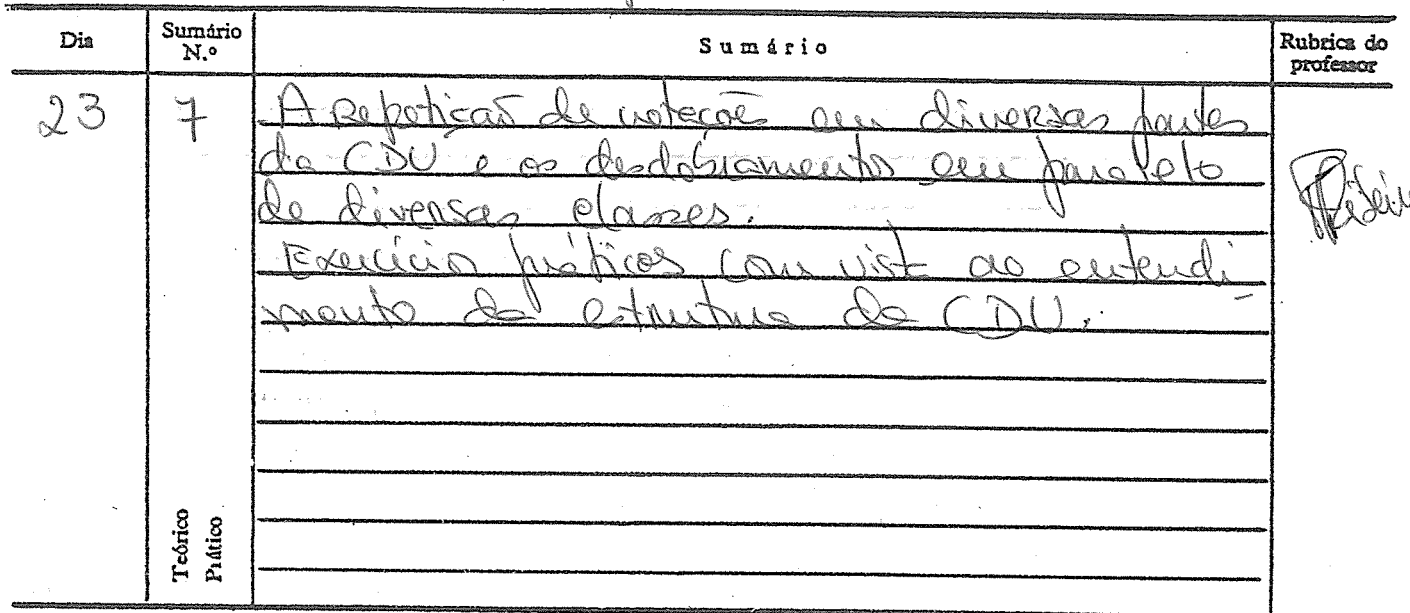 Dia
Sumário N.º
Sumário
Rubrica do professor
23
7
A Repetição de notações em diversas partes
da CDU e os desdobramentos em paralelo
de diversas classes.
Exercícios práticos com vista ao entendi
mento da estrutura da CDU.
Ribeiro
Teórico
Prático